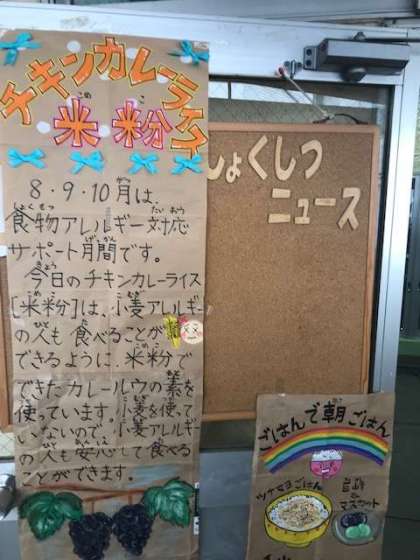 チキンカレーライス
こめ こ
米粉
8・9・10月は、
食物アレルギー対応
サポート月間です。
今日のチキンカレーライス
[米粉]は、小麦アレルギー
の人も食べることが
できるように米粉で
できたカレールウの素を
使っています。小麦を使って
いないので、小麦アレルギー
の人も安心して食べる
ことができます。
しょくしつ
ニュース
ごはんで朝ごはん
ツナマヨごはん
マスカット